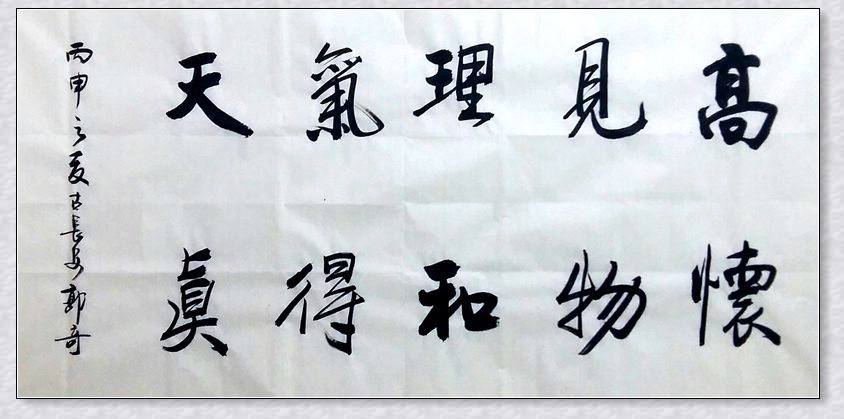 高懷
見物
理和
氣得
天真
丙申之夏古長安郭奇